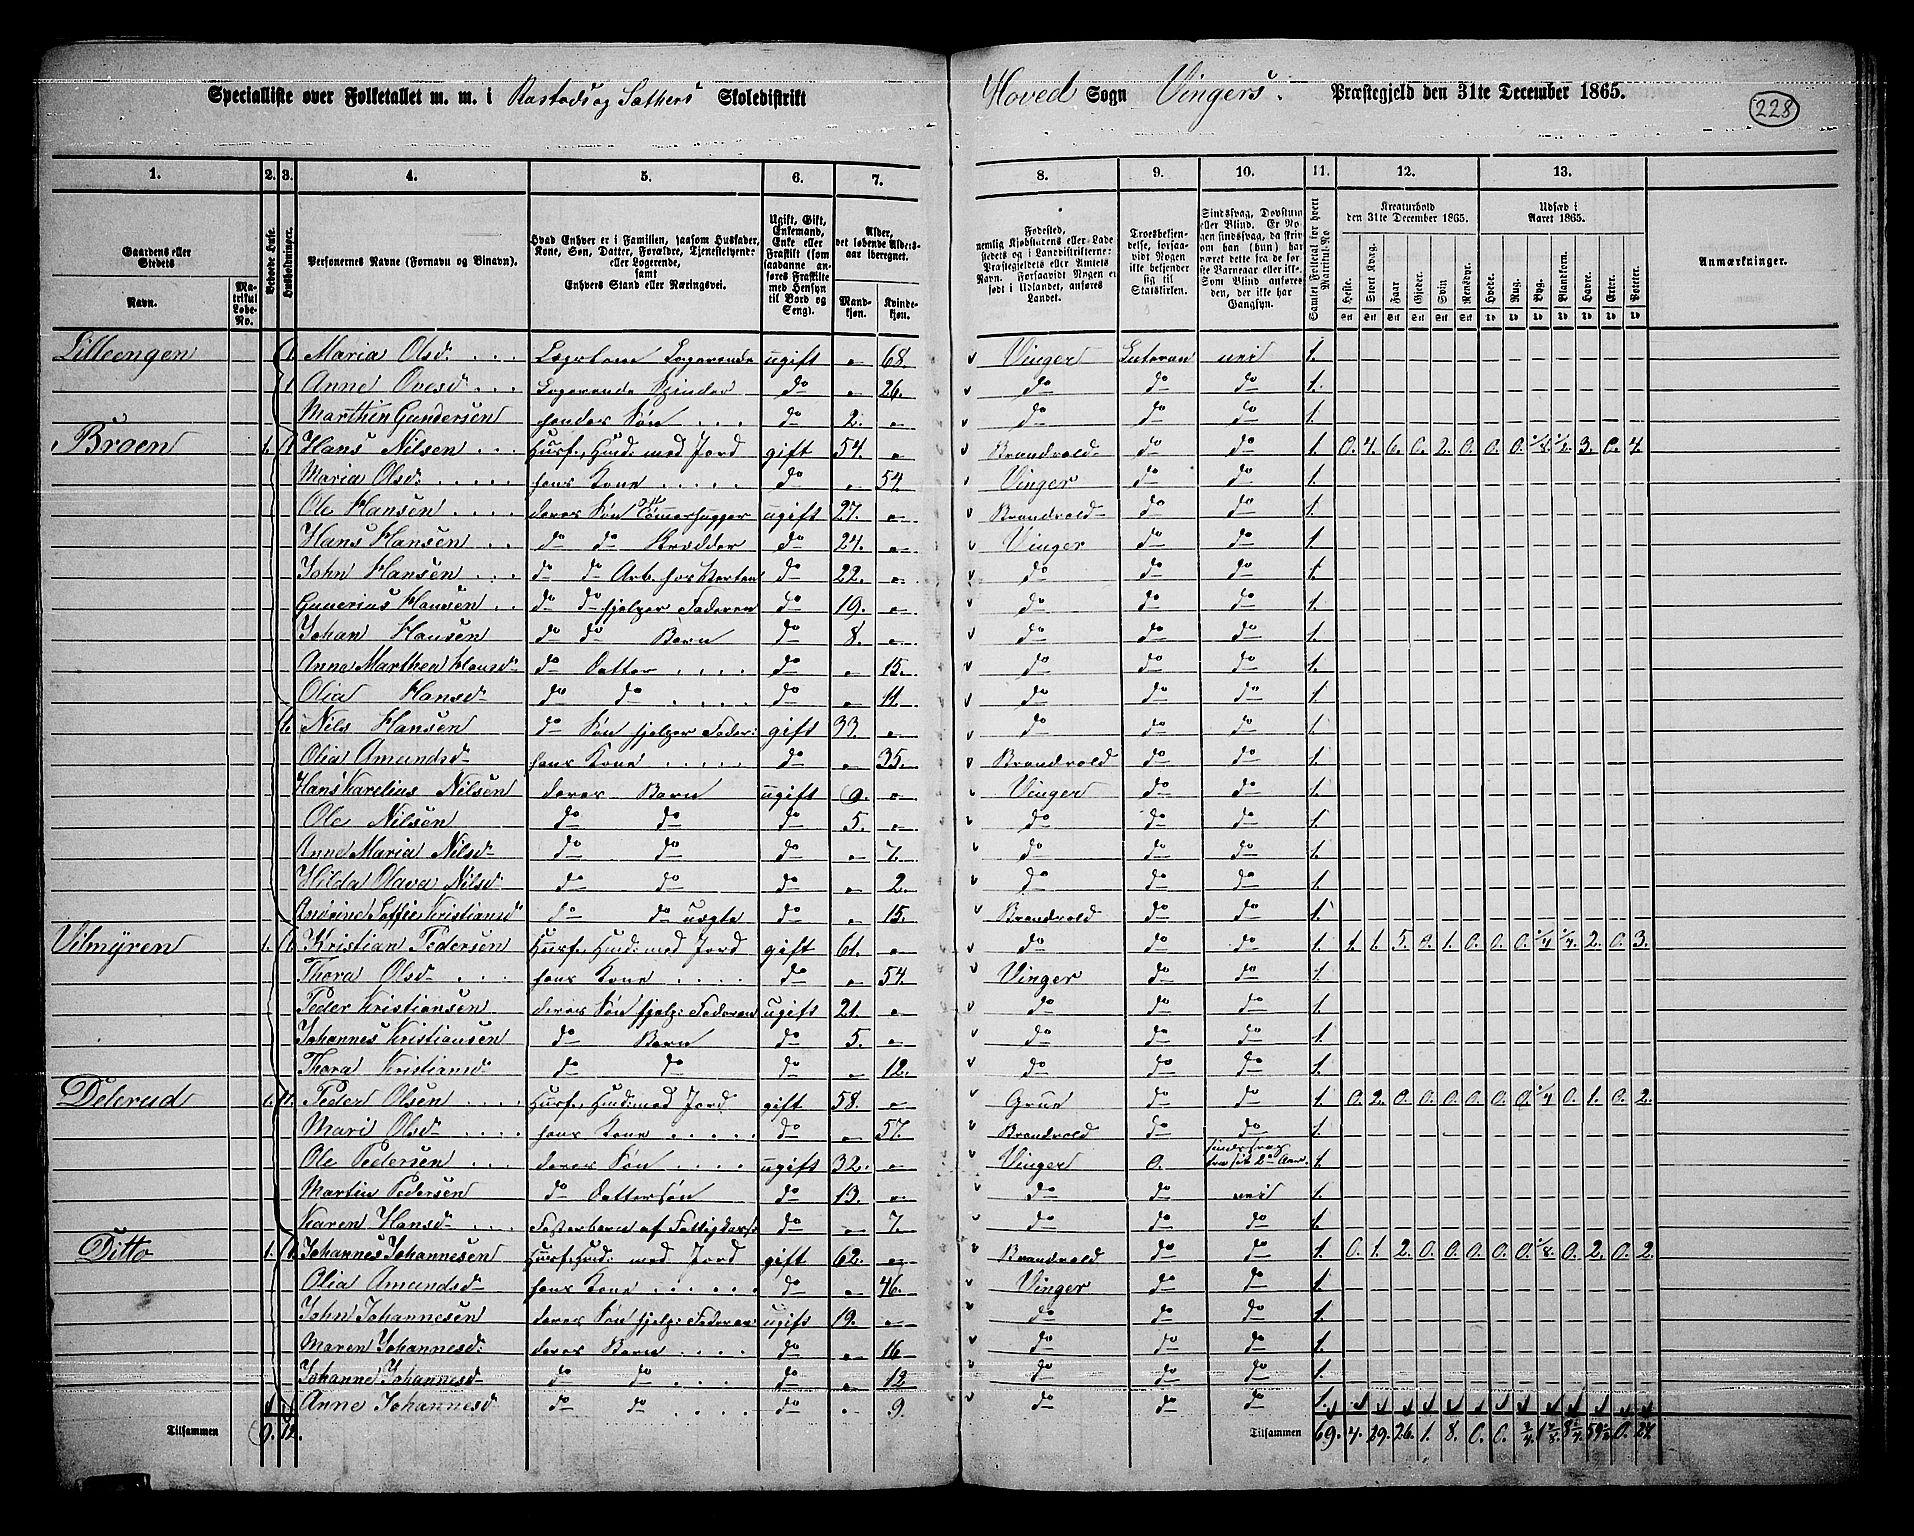 Specialliste over Folketallet m. m. i Rastads og Sæthers Skoledistrikt Hoved Sogn Vingers. Præstegjeld den 31te December 1865. 228
1. 2. 3. 4. 5. 6. 7. 8. 9. 10. 11. 12. 13.
Gaardens eller Stedets Navn. Matrikul Løbe-No.
Beboede Huse.
Husholdninger.
Personernes Navne (Fornavn og Binavn).
Hvad Enhver er i Familien, saasom Husfader, Kone, Søn, Datter, Forældre, Tjenestetyende eller Logerende, samt Enhvers Stand eller Næringsvei.
Ugift, Gift, Enkemand, Enke eller Fraskilt (som saadanne anføres Fraskilte med Hensyn til Bord og Seng).
Alder, det løbende Alders-aar iberegnet. Mand-kjøn. Kvinde-kjøn.
Fødested, nemlig Kjøbstadens eller Ladestedets eller i Landdistrikterne: Præstegjeldets eller Amtets Navn. Forsaavidt Nogen er født i Udlandet, anføres Landet.
Troesbekjendelse, forsaavidt Nogen ikke bekjender sig til Statskirken.
Sindssvag, Døvstum eller Blind. Er Nogen sindssvag, da skrives om han (hun) har været dette fra de første Barneaar eller ikke. Som Blind anføres den, der ikke har Gangsyn.
Samlet Folketal for hvert Matrikul-No
Kreaturhold den 31te December 1865. Heste. Stort Kvæg. Faar Gjeder. Svin Rensdyr.
Udsæd i Aaret 1865. Hvede. Rug. Byg. Blandkorn. Havre. Erter. Poteter.
Anmærkninger.
Lilleengen 1. Maria Olsd: Logerende ugift 68. Vinger Luteran nei 1.
1. Anne Ovesd Logerende do 26. do do do 1.
Marthin Gundersen hendes Søn do 2. do do do 1.
Broen 1. 1. Hans Nilsen Husf. Husm: med Jord gift 54. Brandvold do do 1. 0. 4. 6. 0. 2. 0. 0. 0. 1/4. 1/2. 3. 0. 4.
Maria Olsd: hans Kone do 54. Vinger do do 1.
Ole Hansen deres Søn Tømmerhugger ugift 27. Brandvold do do 1.
Hans Hansen do do Skrædder do 24. Vinger do do 1.
John Hansen do do do 22. do do do 1.
Gunerius Hansen do do hjelper Faderen do 19. do do do 1.
Johan Hansen do do Barn do 8. do do do 1.
Anne Marthea Hansd do Datter do 15. do do do 1.
Olia Hansd do do do 11. do do do 1.
1. Nils Hansen do Søn hjelper Fader: gift 33. do do do 1.
Olia Amundsd hans Kone do 35. Brandvold do do 1.
Hans Karelius Nilsen deres Barn ugift 9. Vinger do do 1.
Ole Nilsen do do do 5. do do do 1.
Anne Maria Nilsd do do do 7. do do do 1.
Hilda Olava Nilsd do do do 2. do do do 1.
Andrine Soffie Kristiansd do do uægte do 15. Brandvold do do 1.
Vilmyren 1. 1. Kristian Pedersen Husf. Husm: med Jord gift 61. do do do 1. 1. 1. 5. 0. 1. 0. 0. 0. 1/4 1/4. 2. 0. 3.
Thora Olsd hans Kone do 54. Vinger do do 1.
Peder Kristiansen deres Søn hjelp: Faderen ugift 21. do do do 1.
Johannes Kristiansen do Barn do 5. do do do 1.
Thora Kristiansd do do do 12. do do do 1.
Delerud 1. 1. Peder Olsen Husf. Husm: med Jord gift 58. Grue do do 1. 0. 2. 0. 0. 0. 0. 0. 0. 1/4 0. 1. 0. 2.
Mari Olsd hans Kone do 57. Brandvold do do 1.
Ole Pedersen deres Søn ugift 32. Vinger 0. sindssvag fra sit 2det Aar. 1.
Martin Pedersen do Dattersøn do 13. do do nei 1.
Karen Hansd Fosterbarn af do 7. do do do 1.
Ditto 1. 1. Johannes Johannesen Husf. Husm: med Jord gift 62. Brandvold do do 1. 0. 1. 2. 0. 0. 0. 0. 0. 1/8. 0. 2. 0. 2.
Olia Amundsd hans Kone do 46. Vinger do do 1.
John Johannesen deres Søn hjelp: Faderen: ugift 19. do do do 1.
Maren Johannesd: deres Barn do 16 do do do 1.
Johanne Johannesd do do do 12 do do do 1.
Anne Johannesd do do do 9. do do do 1.
Tilsammen 9. 12. Tilsammen 69. 4. 29. 26. 1. 8. 0. 0. 0. 24